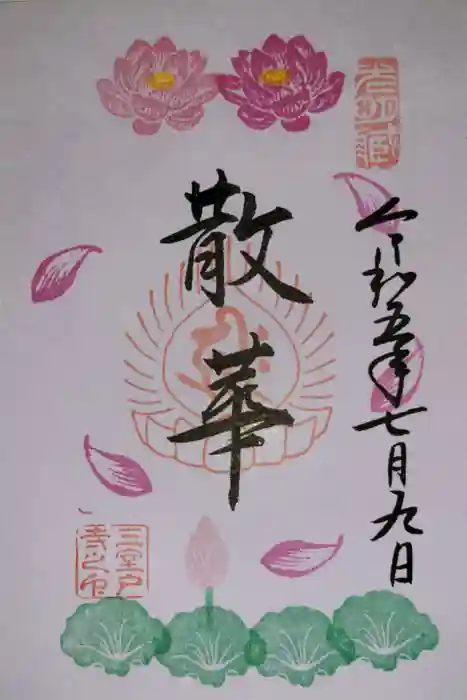 令和五年七月九日
散華
三室戸
寺之印